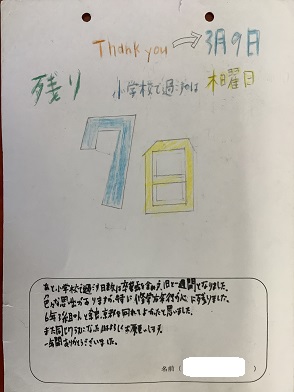 Thank you → 3月9日
残り 小学校で過ごすのは 木曜日
7日
あと小学校で過ごす日数は卒業式を含め、7日と一週間となりました。
色々な思い出がありますが、特に修学旅行が心に残りました。
6年3組の人と奈良、京都を回れてよかったと思いました。
また同じクラスになったらよろしくお願いします。
一年間ありがとうございました。
名前（ ）